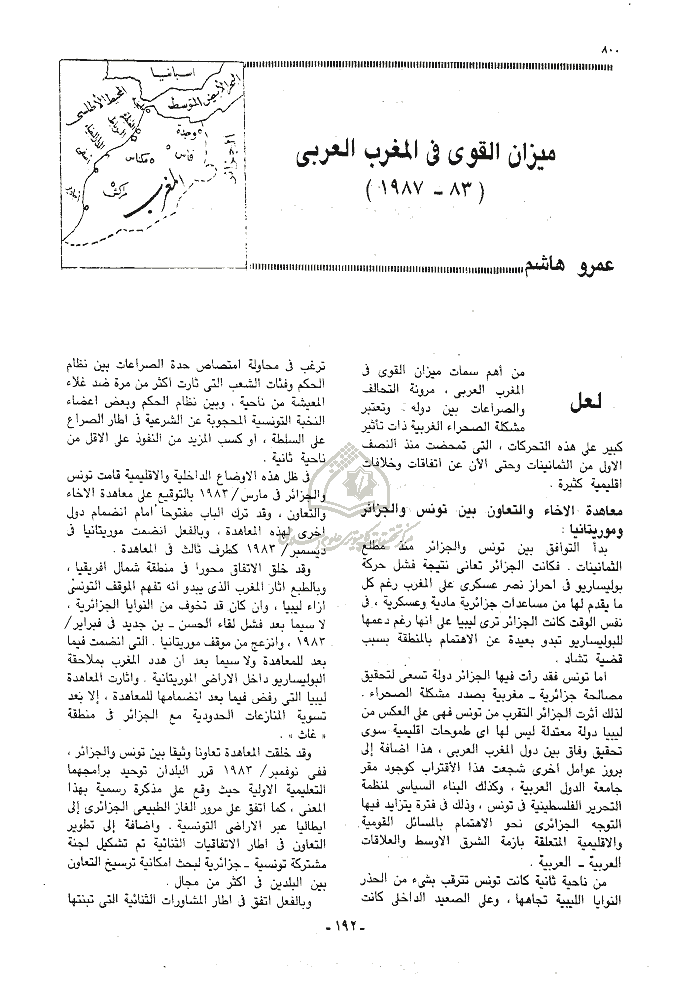 ٨٠٠
اسبانيا
البحر الأبيض المتوسط
المحيط الأطلسي
طنجة
الرباط
وجدة
فاس
مكناس
مراكش
المغرب
الجزائر
ميزان القوى فى المغرب العربى
( ٨٣ - ١٩٨٧ )
عمرو هاشم
لعل
من أهم سمات ميزان القوى فى
المغرب العربى ، مرونة التحالف
والصراعات بين دوله . وتعتبر
مشكلة الصحراء الغربية ذات تأثير
كبير على هذه التحركات ، التى تمحضت منذ النصف
الاول من الثمانينات وحتى الأن عن اتفاقات وخلافات
اقليمية كثيرة .
معاهدة الاخاء والتعاون بين تونس والجزائر
وموريتانيا :
بدأ التوافق بين تونس والجزائر منذ مطلع
الثمانينات . فكانت الجزائر تعانى نتيجة فشل حركة
بوليساريو فى احراز نصر عسكرى على المغرب رغم كل
ما يقدم لها من مساعدات جزائرية مادية وعسكرية ، فى
نفس الوقت كانت الجزائر ترى ليبيا على انها رغم دعمها
للبوليساريو تبدو بعيدة عن الاهتمام بالمنطقة بسبب
قضية تشاد .
أما تونس فقد رأت فيها الجزائر دولة تسعى لتحقيق
مصالحة جزائرية - مغربية بصدد مشكلة الصحراء .
لذلك أثرت الجزائر التقرب من تونس فهى على العكس من
ليبيا دولة معتدلة ليس لها اى طموحات اقليمية سوى
تحقيق وفاق بين دول المغرب العربى ، هذا اضافة إلى
بروز عوامل اخرى شجعت هذا الأقتراب كوجود مقر
جامعة الدول العربية ، وكذلك البناء السياسى لمنظمة
التحرير الفلسطينية فى تونس ، وذلك فى فترة يتزايد فيها
التوجه الجزائرى نحو الاهتمام بالمسائل القومية
والاقليمية المتعلقة بازمة الشرق الاوسط والعلاقات
العربية - العربية .
من ناحية ثانية كانت تونس تترقب بشىء من الحذر
النوايا الليبية تجاهها ، وعلى الصعيد الداخلى كانت
ترغب فى محاولة امتصاص حدة الصراعات بين نظام
الحكم وفئات الشعب التى ثارت اكثر من مرة ضد غلاء
المعيشة من ناحية ، وبين نظام الحكم وبعض اعضاء
النخبة التونسية المحجوبة عن الشرعية فى اطار الصراع
على السلطة ، أو كسب المزيد من النفوذ على الاقل من
ناحية ثانية .
فى ظل هذه الاوضاع الداخلية والاقليمية قامت تونس
والجزائر فى مارس/ ١٩٨٣ بالتوقيع على معاهدة الاخاء
والتعاون ، وقد ترك الباب مفتوحا امام انضمام دول
اخرى لهذه المعاهدة ، وبالفعل انضمت موريتانيا فى
ديسمبر/ ١٩٨٣ كطرف ثالث فى المعاهدة .
وقد خلق الاتفاق محورا فى منطقة شمال افريقيا ،
وبالطبع اثار المغرب الذى يبدو انه تفهم الموقف التونسى
ازاء ليبيا ، وان كان قد تخوف من النوايا الجزائرية ،
لا سيما بعد فشل لقاء الحسن - بن جديد فى فبراير/
١٩٨٣ ، وانزعج من موقف موريتانيا . التى انضمت فيما
بعد للمعاهدة ولا سيما بعد ان هدد المغرب بملاحقة
البوليساريو داخل الاراضى الموريتانية . واثارت المعاهدة
ليبيا التى رفض فيما بعد انضمامها للمعاهدة ، إلا بعد
تسوية المنازعات الحدودية مع الجزائر فى منطقة
« غات » .
وقد خلقت المعاهدة تعاونا وثيقا بين تونس والجزائر ،
ففى نوفمبر/ ١٩٨٣ قرر البلدان توحيد برامجهما
التعليمية الاولية حيث وقع على مذكرة رسمية بهذا
المعنى ، كما اتفق على مرور الغاز الطبيعى الجزائرى إلى
ايطاليا عبر الاراضى التونسية . واضافة إلى تطوير
التعاون فى اطار الاتفاقيات الثنائية تم تشكيل لجنة
مشتركة تونسية - جزائرية لبحث امكانية ترسيخ التعاون
بين البلدين فى اكثر من مجال .
وبالفعل اتفق فى اطار المشاورات الثنائية التى تبنتها
- ١٩٢ -